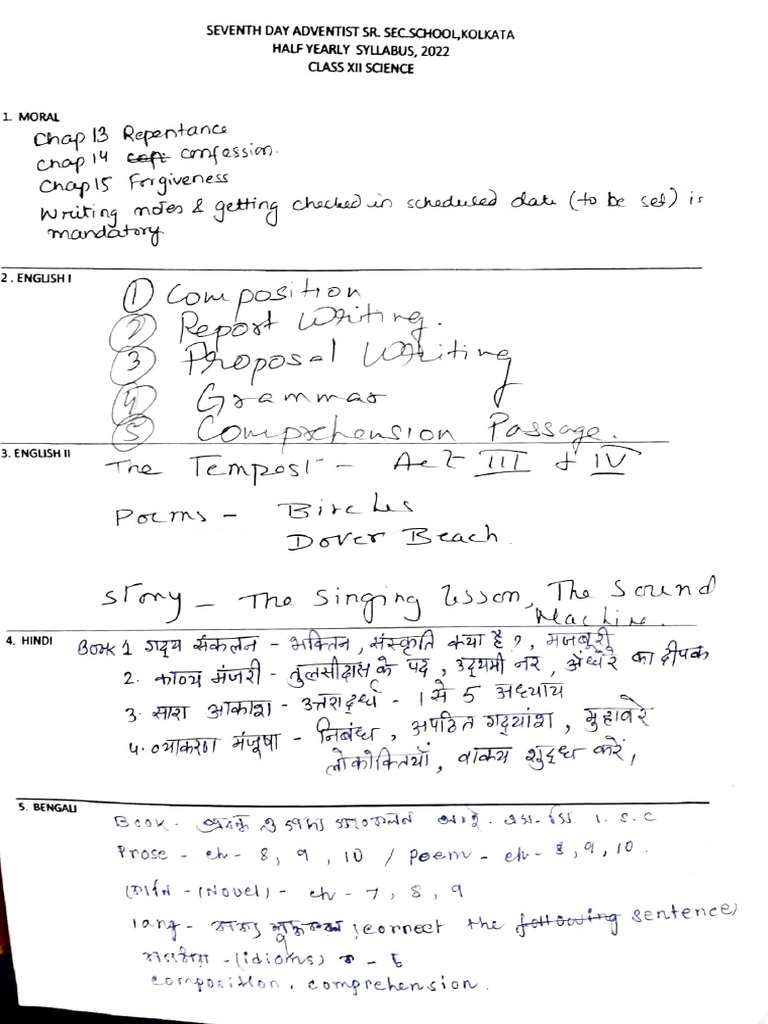 SEVENTH DAY ADVENTIST SR. SEC.SCHOOL,KOLKATA
HALF YEARLY SYLLABUS, 2022
CLASS XII SCIENCE
1. MORAL
Chap 13 Repentance
Chap 14 confession.
Chap 15 Forgiveness
Writing notes & getting checked in scheduled date (to be set) is
mandatory
2. ENGLISH I
① Composition
② Report Writing.
③ Proposal Writing
④ Grammar
⑤ Comprehension Passage.
3. ENGLISH II
The Tempest - Act III & IV
Poems - Birches
Dover Beach.
Story - The Singing Lesson, The Sound
Machine.
4. HINDI
Book 1 गद्य संकलन - भक्तिन, संस्कृति क्या है?, मजबूरी
2. काव्य मंजरी - तुलसीदास के पद, उद्यमी नर, अंधेरे का दीपक
3. सारा आकाश - उत्तरार्द्ध - 1 से 5 अध्याय
4. व्याकरण मंजूषा - निबंध, अपठित गद्यांश, मुहावरे
लोकोक्तियाँ, वाक्य शुद्ध करें,
5. BENGALI
Book - I. S. C
Prose - ch - 8, 9, 10 / Poem - ch - 8, 9, 10.
(Novel) - ch - 7, 8, 9
lang - correct the following sentence)
(idioms)
composition, comprehension.